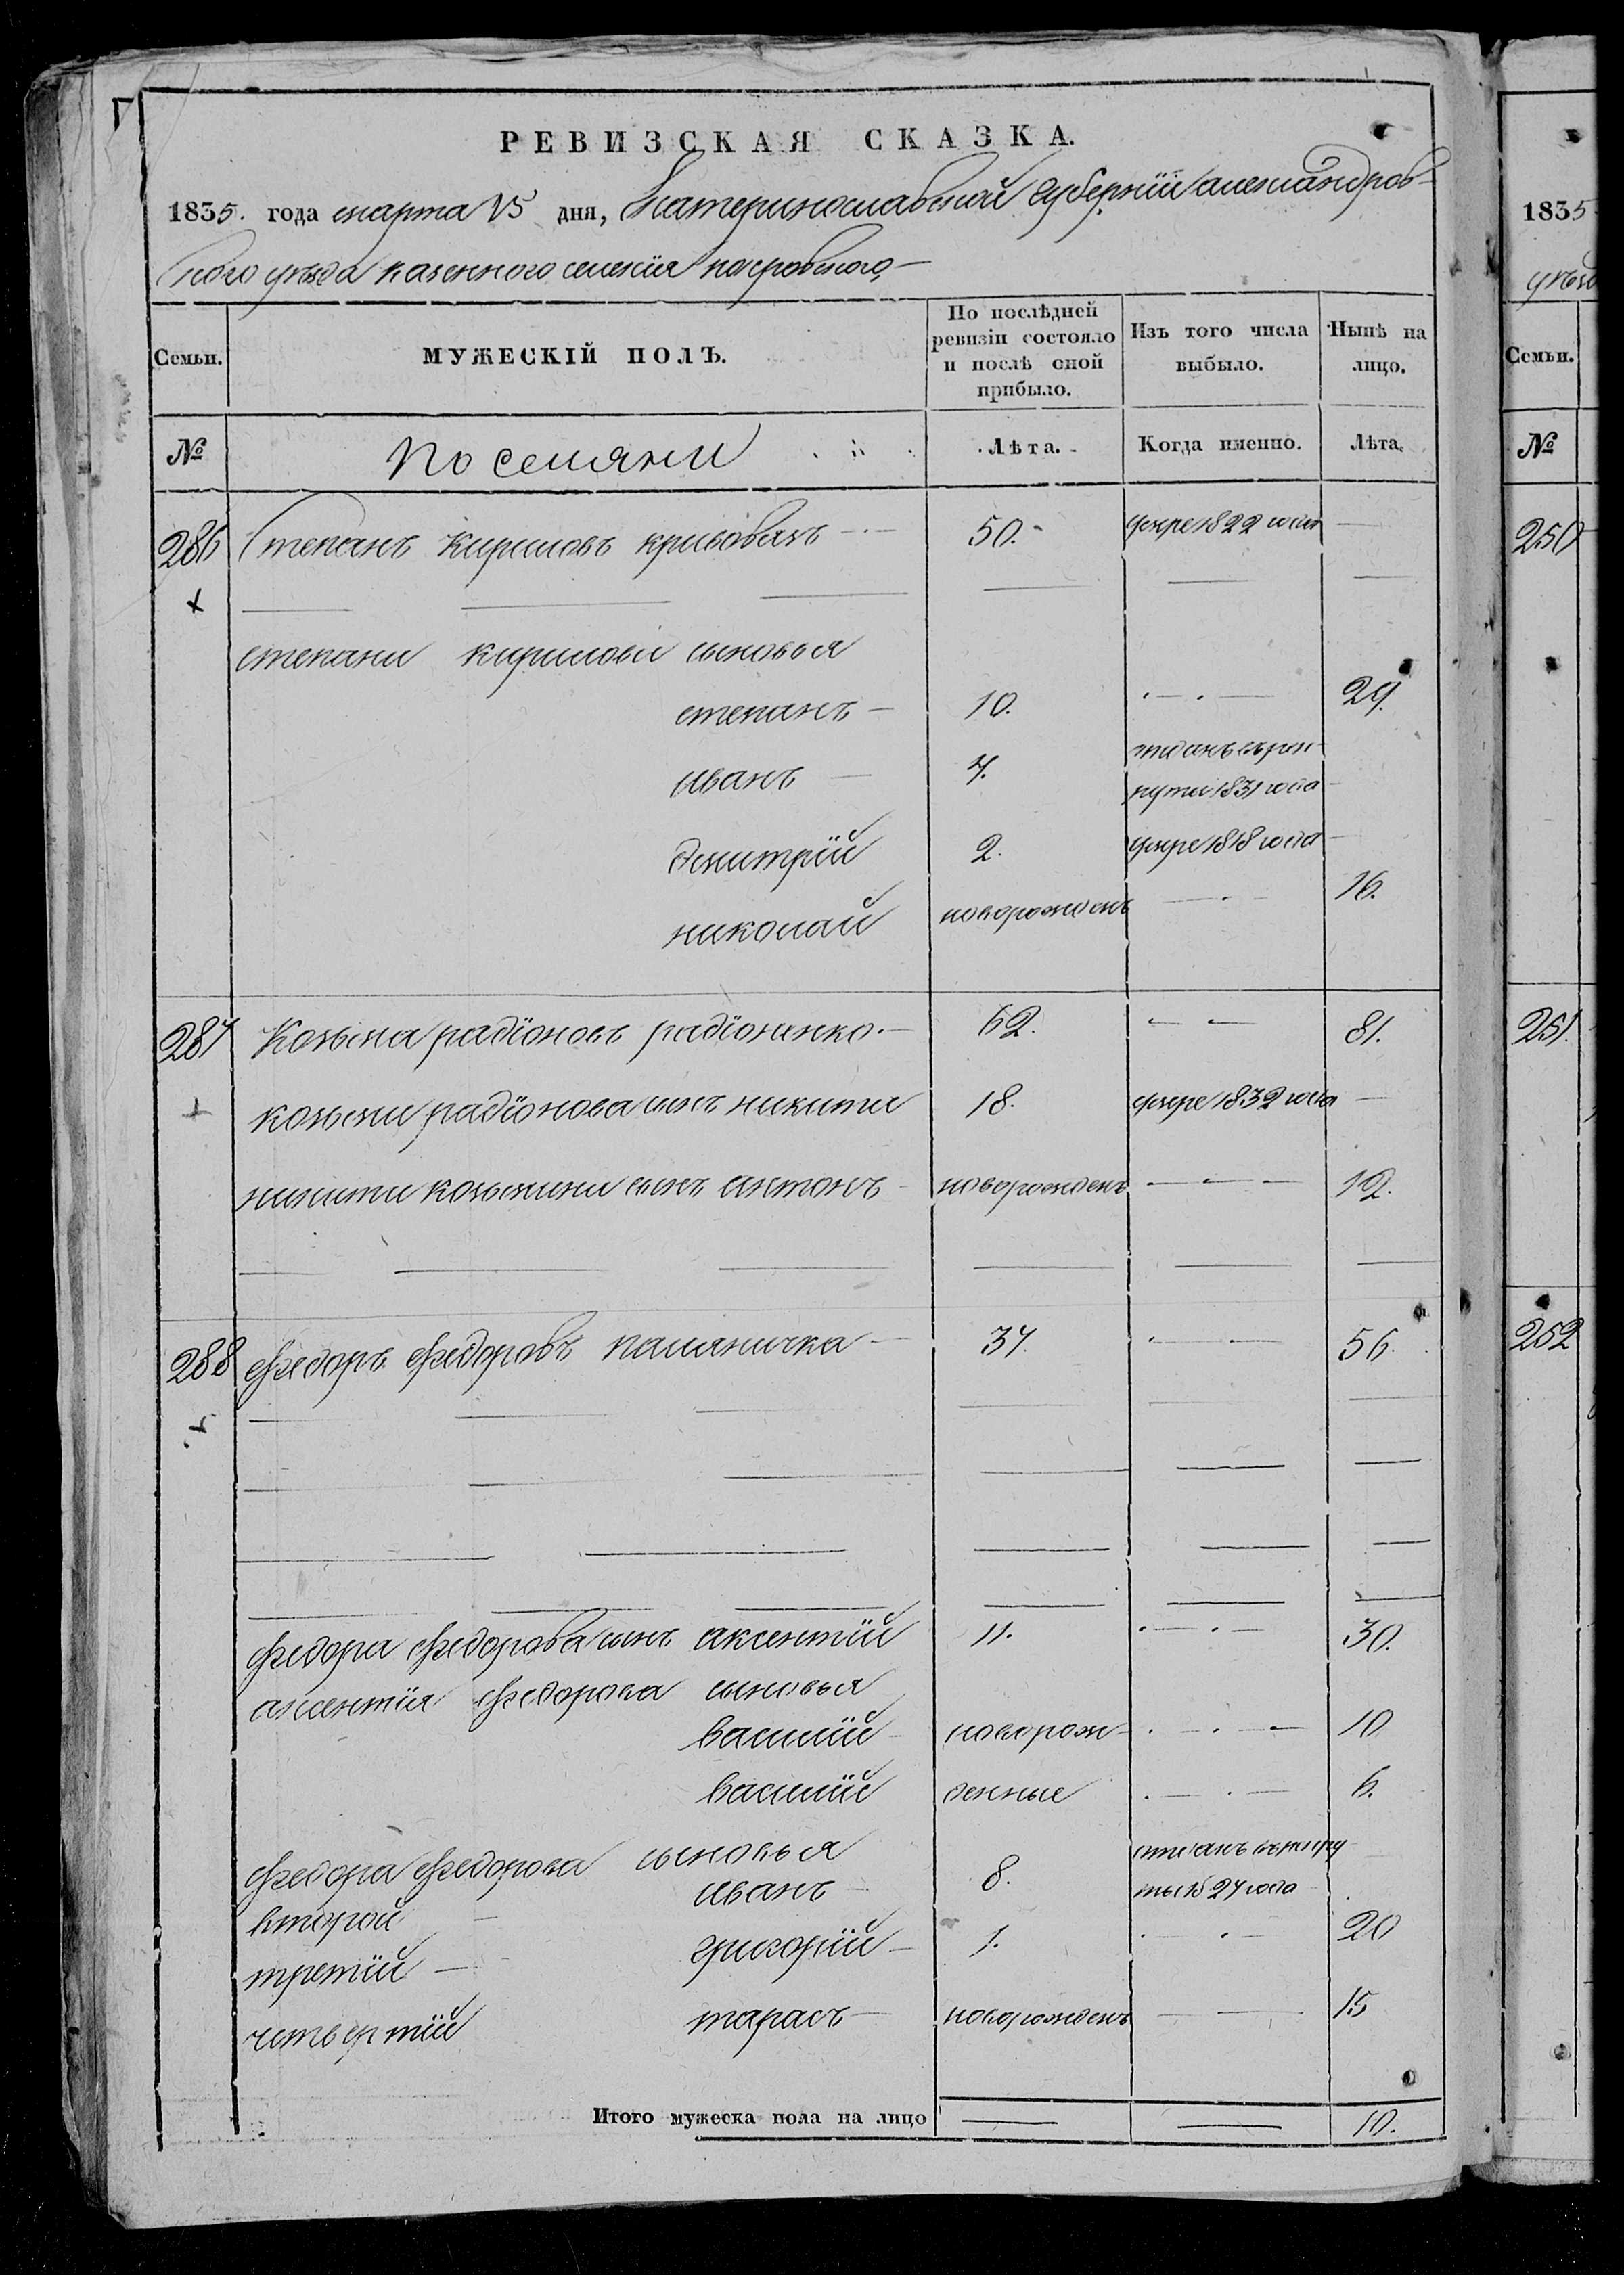 РЕВИЗСКАЯ СКАЗКА.
1835. года марта 15 дня, Екатеринославской губерніи александров-
ского уезда казенного селенія покровского
Семьи. МУЖЕСКІЙ ПОЛЪ. По послѣдней ревизіи состояло и послѣ оной прибыло. Изъ того числа выбыло. Нынѣ на лицо.
№ Поселяни Лѣта. Когда именно. Лѣта.
286 Степанъ кириловъ 50. умре 1822 года
степани кирилови сыновья
степанъ 10. 29.
иванъ 7. отданъ въ рек-
рути 1831 года
дмитрій 2. умре 1818 года
николай новорожденъ 16.
287 Козьма радіоновъ радіоненко 62. 81.
козьми радіонова сынъ никити 18. умре 1832 года
никити козьмини сынъ антонъ новорожденъ 12.
288 федоръ федоровъ паляничка 37. 56.
федора федорова сынъ аксентій 11. 30.
аксентія федорова сыновья
василій новорож- 10
василій денные 6.
федора федорова сыновья
второй иванъ 8. отданъ въ рекру
ты 1827 года
третій григорій 1. 20
четвертій тарасъ новорожденъ 15
Итого мужеска пола на лицо 10.
1835
уезд
Семьи.
№
250
251.
252